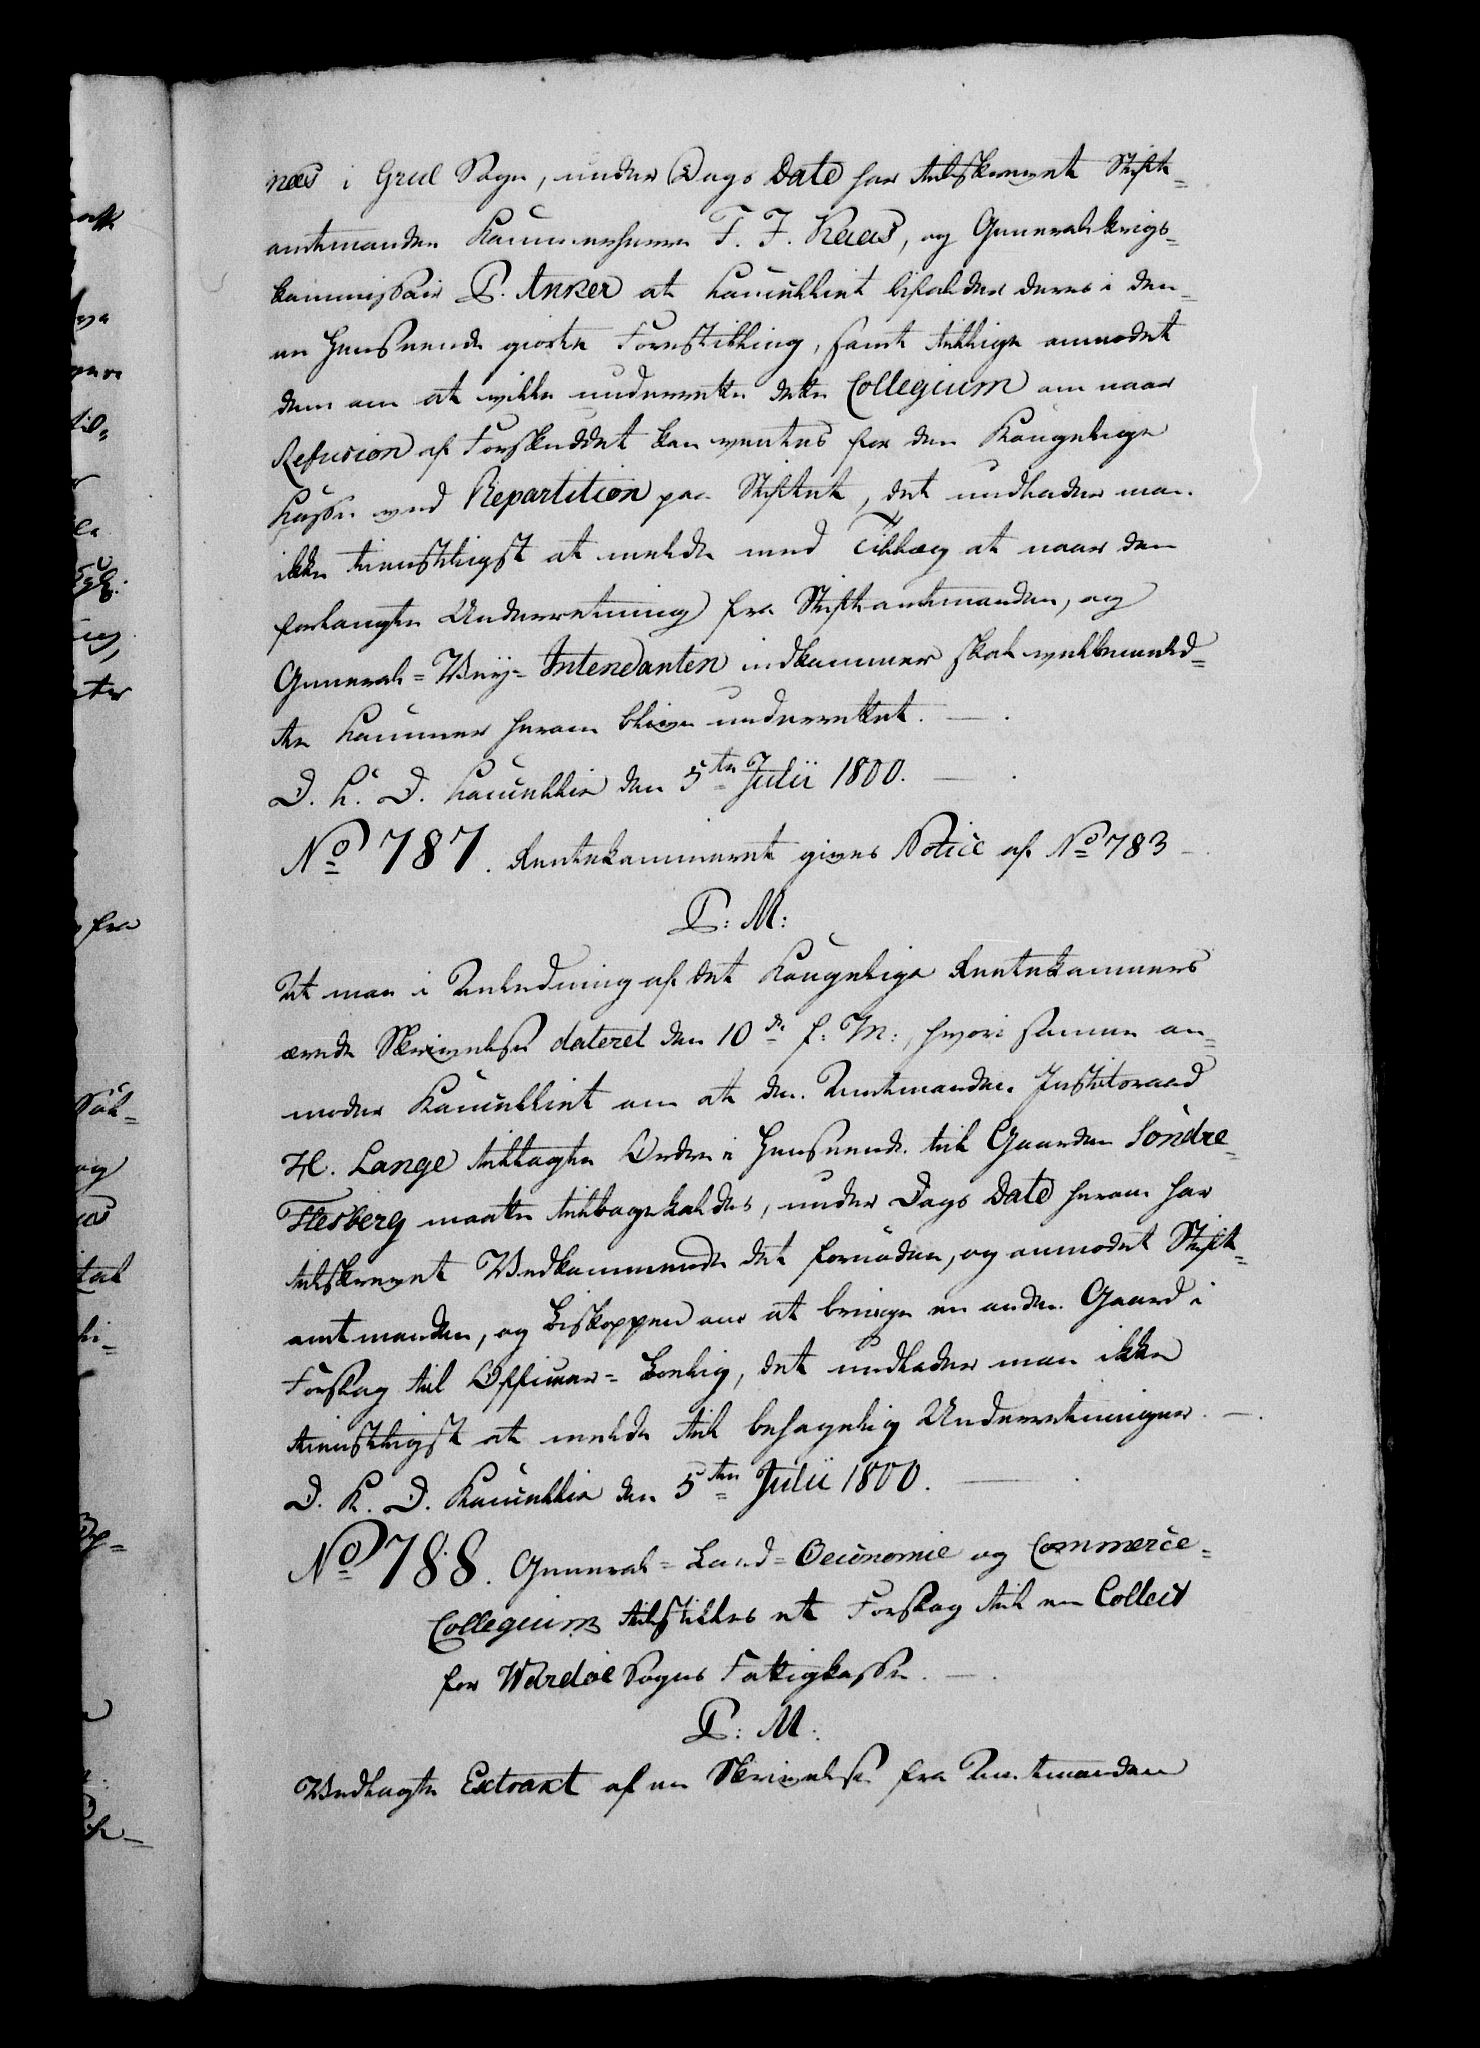 næs i Grue Sogn, under Dags Dato har tilskrevet Stift-
amtmanden Kammerherre F. J. Kaas, og Generalkrigs-
kommissair P. Anker at Cancelliet bifalder deres i den-
ne Henseende giorte Forestilling, samt tillige anmodet
dem om at ville underrette dette Collegium om naar
Refusion af Forskuddet kan ventes for den Kongelige
Kasse ved Repartition paa Stiftet, det undlader man
ikke tienstligst at melde med Tillæg at naar den
forlangte Underretning fra Stiftamtmanden, og
General-Vey-Intendanten indkommer skal velbemeld-
te Kammer herom blive underrettet. —
D. C. D. Cancellie den 5te Julii 1800. —
No 787. Rentekammeret gives Notice af No 783 —
P: M:
At man i Anledning af det Kongelige Rentekammers
ærede Skrivelse dateret den 10de f: M:, hvori samme an-
moder Kancelliet om at den Amtmanden Justitsraad
H. Lange tillagte Ordre i Henseende til Gaarden Söndre-
Flesberg maatte tilbagekaldes, under Dags Dato herom har
tilskrevet Vedkommende det fornödne, og anmodet Stift-
amtmanden, og Biskoppen om at bringe en anden Gaard i
Forslag til Officeer-Bolig, det undlader man ikke
tienstligst at melde til behagelig Underretninger. —
D. K. D. Kancellie den 5te Julii 1800. —
No 788. General-Land-Oeconomie og Commerce-
Collegium tilstilles et Forslag til en Collect
for Wardöe Sogns Fattigkasse. —
P: M:
Vedlagte Extract af en Skrivelse fra Amtmanden